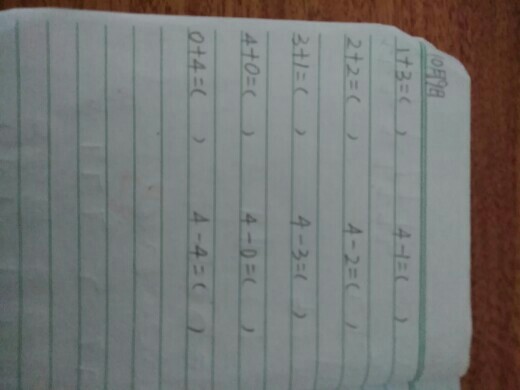 10月9日
1+3=( ) 4-1=( )
2+2=( ) 4-2=( )
3+1=( ) 4-3=( )
4+0=( ) 4-0=( )
0+4=( ) 4-4=( )